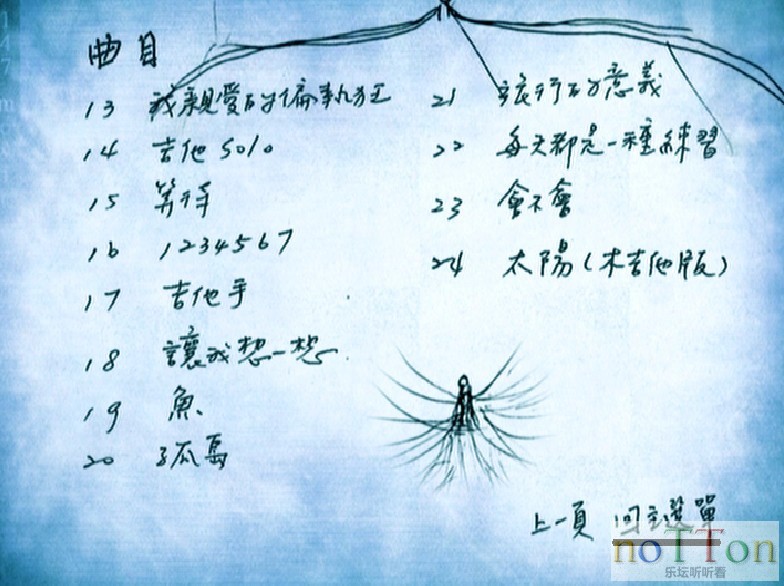 曲目
13 我親愛的偏執狂
14 吉他 solo
15 等待
16 1234567
17 吉他手
18 讓我想一想
19 魚
20 孤島
21 旅行的意義
22 每天都是一種練習
23 會不會
24 太陽(木吉他版)
上一頁 回主選單
noTTon
乐坛听听看